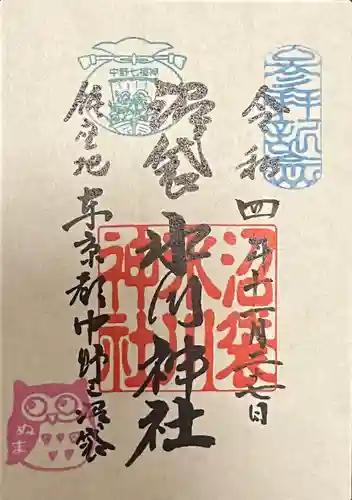 参拝記念
令和四年十一月二十七日
沼袋
氷川神社
沼袋氷川神社
中野七福神
鎮座地
東京都中野区沼袋
ぬま